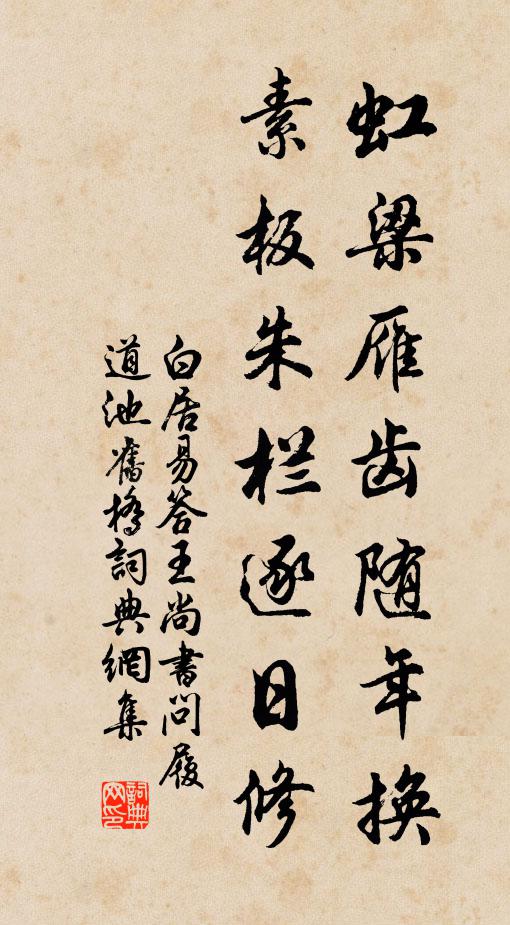 虹梁雁齿随年换
素板朱栏逐日修
白居易答王尚書問履
道池舊橋詞典網集
詞典网印